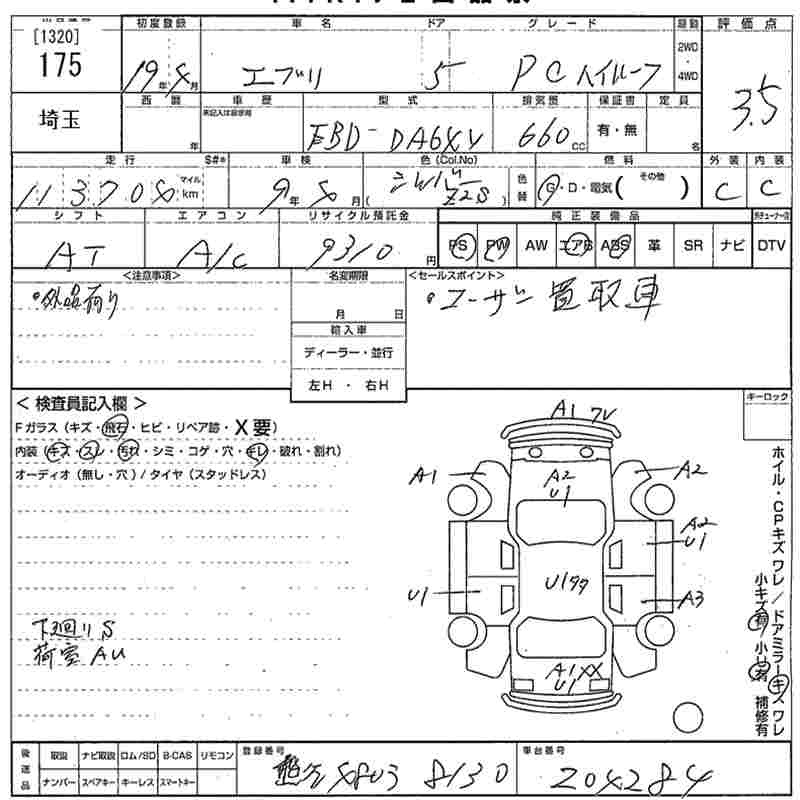 [1320]
175
埼玉
初度登録 車名 ドア グレード 駆動 評価点
19年8月 エブリ 5 PCハイルーフ 2WD・4WD 3.5
西暦 車歴 型式 排気量 保証書 定員
年 EBD-DA64V 660cc 有・無 名
走行 S#* 車検 色(Col.No) 燃料 外装 内装
113708 マイル km 9年8月 ( Z2S ) 色替 G・D・電気( その他 ) C C
シフト エアコン リサイクル預託金 純正装備品
AT A/C 9310円 PS PW AW エアB ABS 革 SR ナビ DTV
<注意事項> 名変期限 <セールスポイント>
外品有り 月 日 ・ユーザー買取車
輸入車
ディーラー・並行
左H ・ 右H
<検査員記入欄> キーロック
Fガラス(キズ・飛石・ヒビ・リペア跡・X要)
内装(キズ・スレ・汚れ・シミ・コゲ・穴・キレ・破れ・割れ)
オーディオ(無し・穴)/タイヤ(スタッドレス)
A1
A1 A2 U1 A2
A2 U1
U1 U1 A3
A1XX
U1
下廻りS
荷室AU
ホイル・CPキズ ワレ/ドアミラーキズ ワレ
小キズ有 小U有 補修有
後送品 取説 ナビ取説 ロム/SD B-CAS リモコン 登録番号 車台番号
ナンバー スペアキー キーレス スマートキー 8130 204284